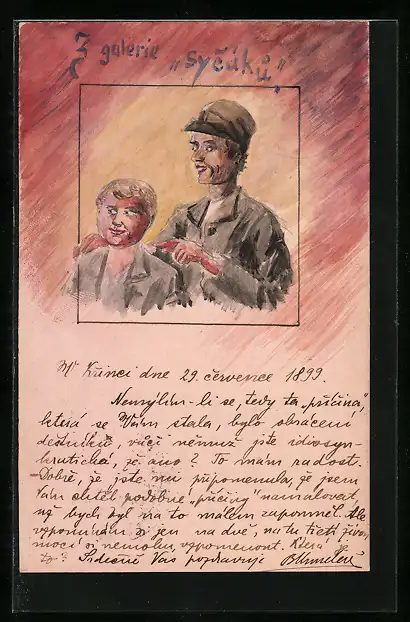 Z galerie „syčáků“
V Křinci dne 29. července 1899.
Nemýlím-li se, tedy ta „příčina“,
která se Vám stala, bylo obrácení
deštníků, vůči němuž jste idiosyn-
kratická, že ano? To mám radost.
Dobře, že jste mi připomenula, že jsem
Vám chtěl podobné „příčiny“ namalovat,
už bych byl na to málem zapomněl. Ale
vzpomínám si jen na dvě, na tu třetí živou
mocí si nemohu vzpomenout. Která je
to? Srdečně Vás pozdravuje